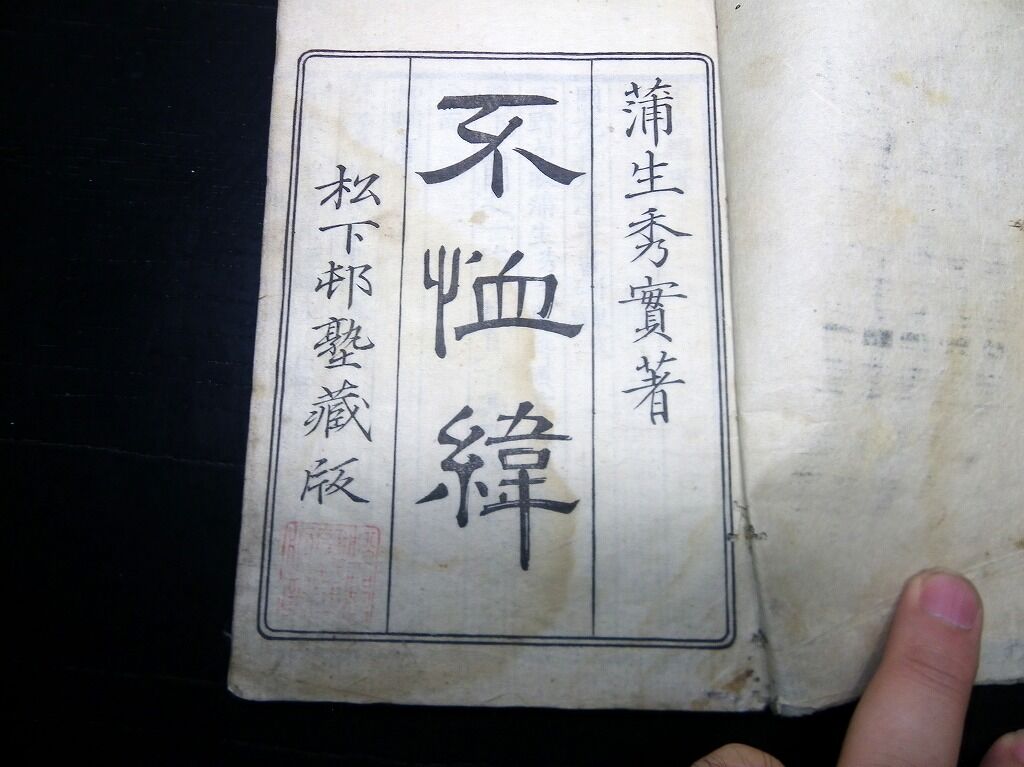 蒲生秀實著
不恤緯
松下邨塾藏版